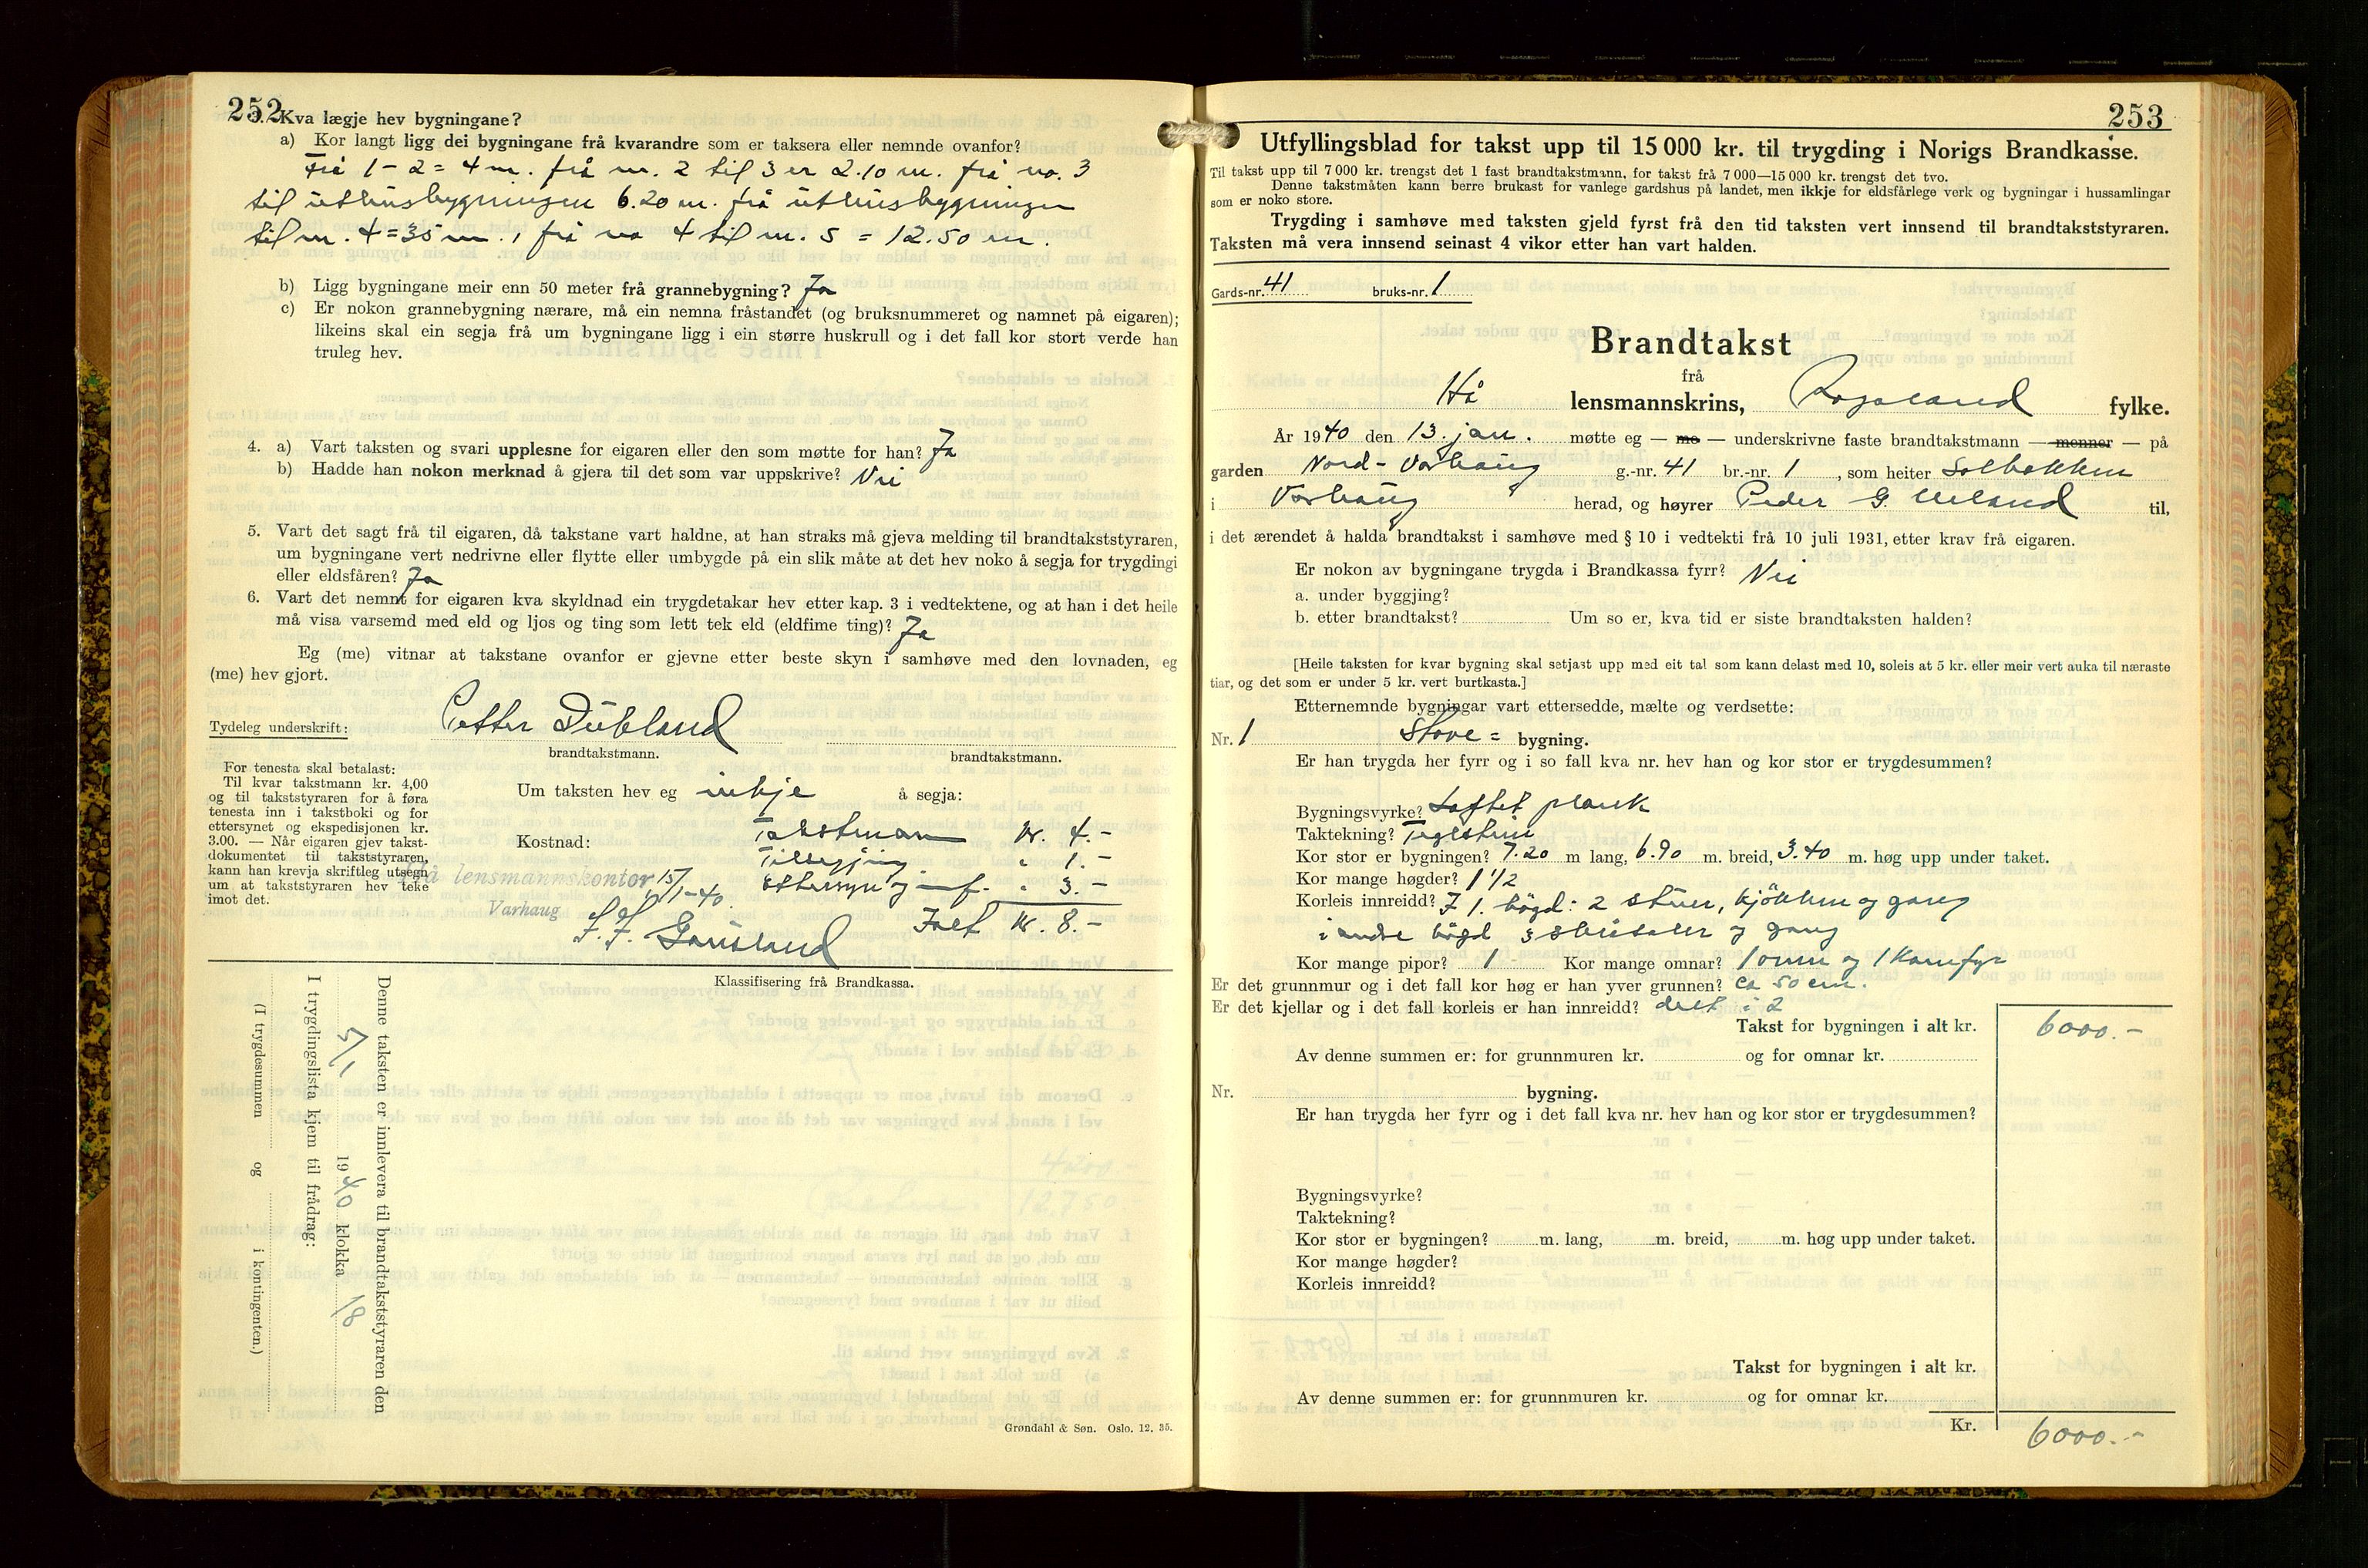 252
3. Kva lægje hev bygningane?
a) Kor langt ligg dei bygningane frå kvarandre som er taksera eller nemnde ovanfor?
Frå 1 - 2 = 4 m. frå nr. 2 til 3 er 2.10 m. frå no. 3
til uthusbygningen 6.20 m. frå uthusbygningen
til nr. 4 = 35 m., frå no 4 til nr. 5 = 12.50 m.
b) Ligg bygningane meir enn 50 meter frå grannebygning? Ja
c) Er nokon grannebygning nærare, må ein nemna fråstandet (og bruksnummeret og namnet på eigaren);
likeins skal ein segja frå um bygningane ligg i ein større huskrull og i det fall kor stort verde han
truleg hev.
4. a) Vart taksten og svari upplesne for eigaren eller den som møtte for han? Ja
b) Hadde han nokon merknad å gjera til det som var uppskrive? Nei
5. Vart det sagt frå til eigaren, då takstane vart haldne, at han straks må gjeva melding til brandtakststyraren,
um bygningane vert nedrivne eller flytte eller umbygde på ein slik måte at det hev noko å segja for trygdingi
eller eldsfåren? Ja
6. Vart det nemnt for eigaren kva skyldnad ein trygdetakar hev etter kap. 3 i vedtektene, og at han i det heile
må visa varsemd med eld og ljos og ting som lett tek eld (eldfime ting)? Ja
Eg (me) vitnar at takstane ovanfor er gjevne etter beste skyn i samhøve med den lovnaden, eg
(me) hev gjort.
Tydeleg underskrift: Petter Dubland
brandtakstmann. brandtakstmann.
For tenesta skal betalast:
Til kvar takstmann kr. 4,00
og til takststyraren for å føra
tenesta inn i takstboki og for
ettersynet og ekspedisjonen kr.
3.00. — Når eigaren gjev takst-
dokumentet til takststyraren,
kann han krevja skriftleg utsegn
um at takststyraren hev teke
imot det.
Um taksten hev eg inkje å segja:
Kostnad: Takstmann kr. 4.-
Tilsegjing " 1.-
Ettersyn og innf. " 3.-
Ialt kr. 8.-
Hå lensmannskontor 15/1-40.
Varhaug
F. F. Gausland
Klassifisering frå Brandkassa.
Denne taksten er innlevera til brandtakststyraren den
5/1 1940 klokka 18
I trygdingslista kjem til frådrag:
(I trygdesummen og i kontingenten.)
Grøndahl & Søn. Oslo. 12. 35.
253
Utfyllingsblad for takst upp til 15 000 kr. til trygding i Norigs Brandkasse.
Til takst upp til 7 000 kr. trengst det 1 fast brandtakstmann, for takst frå 7 000—15 000 kr. trengst det tvo.
Denne takstmåten kann berre brukast for vanlege gardshus på landet, men ikkje for eldsfårlege verk og bygningar i hussamlingar
som er noko store.
Trygding i samhøve med taksten gjeld fyrst frå den tid taksten vert innsend til brandtakststyraren.
Taksten må vera innsend seinast 4 vikor etter han vart halden.
Gards-nr. 41 bruks-nr. 1
Brandtakst
frå
Hå lensmannskrins, Rogaland fylke.
År 1940 den 13. jan. møtte eg — me — underskrivne faste brandtakstmann — menner — på
garden Nord-Varhaug g.-nr. 41 br.-nr. 1, som heiter Solbakken
i Varhaug herad, og høyrer Peder G. Ueland til,
i det ærendet å halda brandtakst i samhøve med § 10 i vedtekti frå 10 juli 1931, etter krav frå eigaren.
Er nokon av bygningane trygda i Brandkassa fyrr? Nei
a. under byggjing?
b. etter brandtakst? Um so er, kva tid er siste brandtaksten halden?
[Heile taksten for kvar bygning skal setjast upp med eit tal som kann delast med 10, soleis at 5 kr. eller meir vert auka til næraste
tiar, og det som er under 5 kr. vert burtkasta.]
Etternemnde bygningar vart ettersedde, mælte og verdsette:
Nr. 1 Stove = bygning.
Er han trygda her fyrr og i so fall kva nr. hev han og kor stor er trygdesummen?
Bygningsvyrke? Laftet plank
Taktekning? Teglstein
Kor stor er bygningen? 7.20 m lang, 6.90 m. breid, 3.40 m. høg upp under taket.
Kor mange høgder? 1 1/2
Korleis innreidd? I 1. högd: 2 stuer, kjökken og gang
i andre högd 3 s og gang
Kor mange pipor? 1 Kor mange omnar? 1 omn og 1 Komfyr
Er det grunnmur og i det fall kor høg er han yver grunnen? ca 50 cm.
Er det kjellar og i det fall korleis er han innreidd? delt i 2
Takst for bygningen i alt kr. 6000.-
Av denne summen er: for grunnmuren kr. og for omnar kr.
Nr. bygning.
Er han trygda her fyrr og i det fall kva nr. hev han og kor stor er trygdesummen?
Bygningsvyrke?
Taktekning?
Kor stor er bygningen? m. lang, m. breid, m. høg upp under taket.
Kor mange høgder?
Korleis innreidd?
Takst for bygningen i alt kr.
Av denne summen er: for grunnmuren kr. og for omnar kr.
Kr. 6000.-